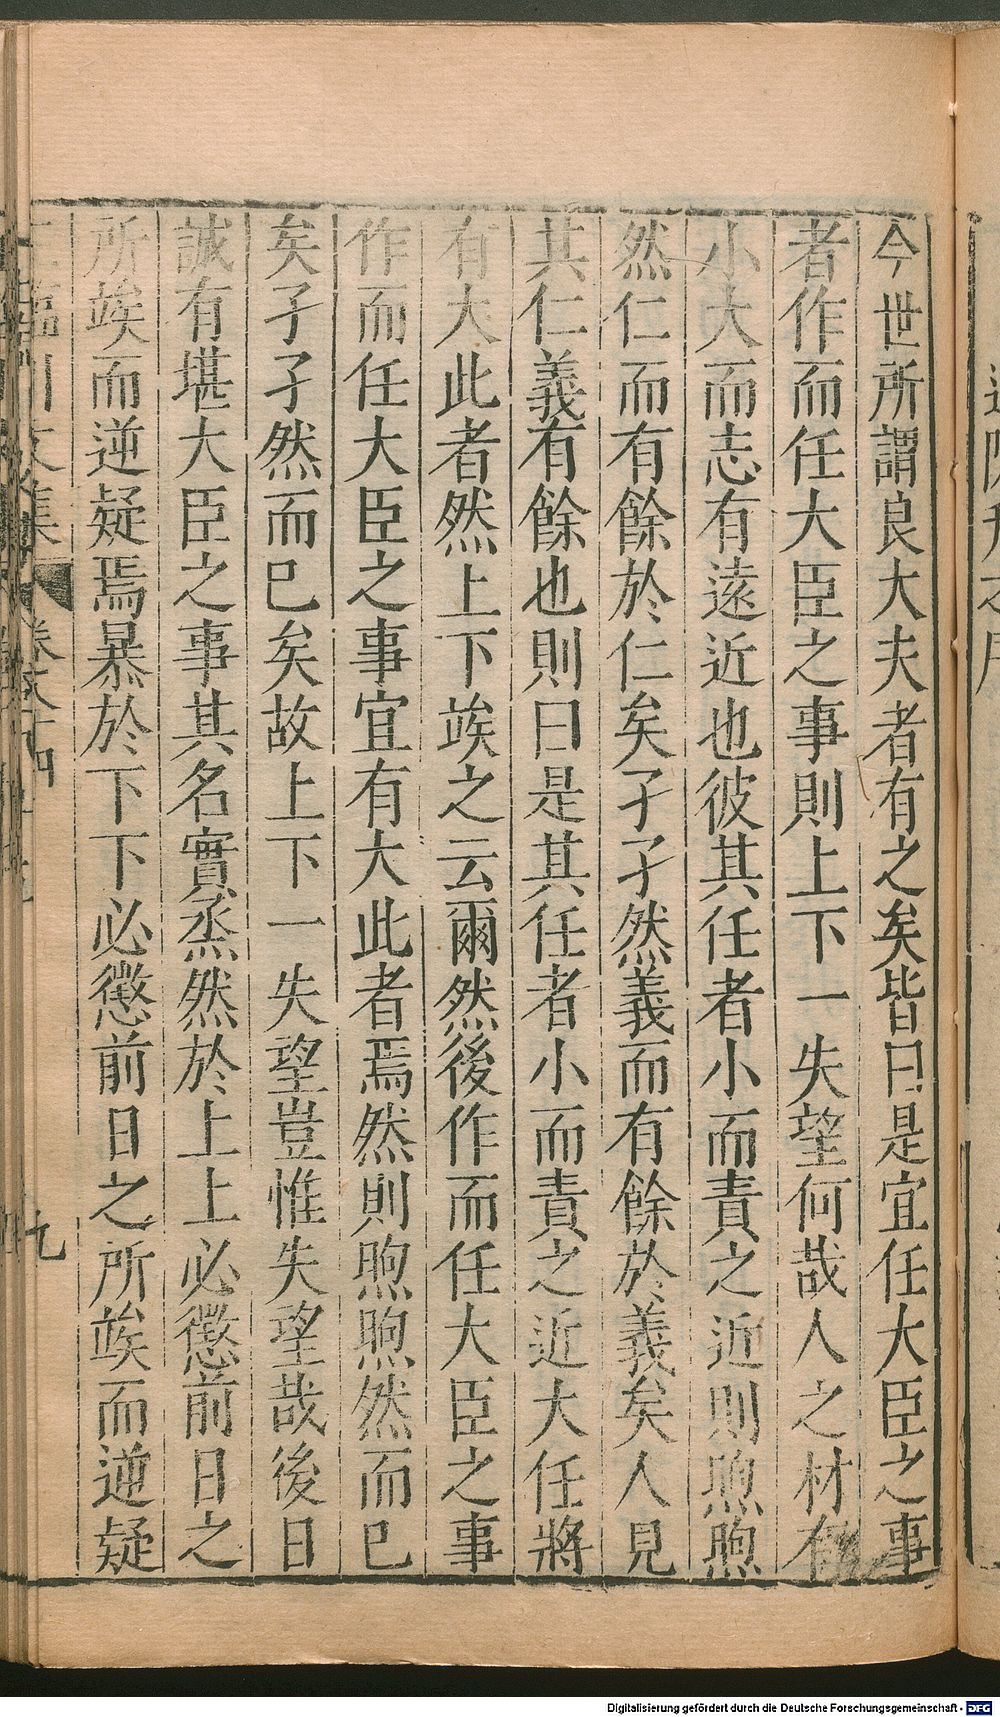 今世所謂良大夫者有之矣皆曰是宜任大臣之事
者作而任大臣之事則上下一失望何哉人之材有
小大而志有遠近也彼其任者小而責之近則煦煦
然仁而有餘於仁矣孑孑然義而有餘於義矣人見
其仁義有餘也則曰是其任者小而責之近大任將
有大此者然上下竢之云爾然後作而任大臣之事
作而任大臣之事宜有大此者焉然則煦煦然而已
矣孑孑然而已矣故上下一失望豈惟失望哉後日
誠有堪大臣之事其名實烝然於上上必懲前日之
所竢而逆疑焉暴於下下必懲前日之所竢而逆疑
臨川文集
九
Digitalisierung gefördert durch die Deutsche Forschungsgemeinschaft - DFG